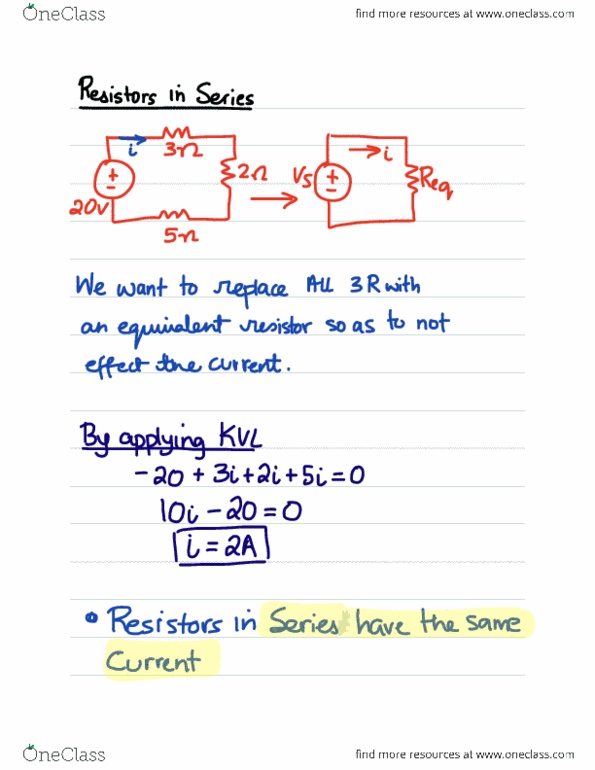 OneClass
find more resources at www.oneclass.com
Resistors in Series
i 3Ω 2Ω 20V 5Ω
Vs i Req
We want to replace ALL 3R with
an equivalent resistor so as to not
effect the current.
By applying KVL
-20 + 3i + 2i + 5i = 0
10i - 20 = 0
i = 2A
• Resistors in Series have the same
Current
OneClass
find more resources at www.oneclass.com